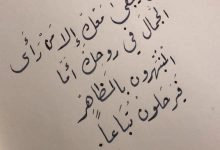 يبقى معك إلا من رأى
الجمال في روحك أما
المنبهرون بالمظاهر
فيرحلون تباعاً.